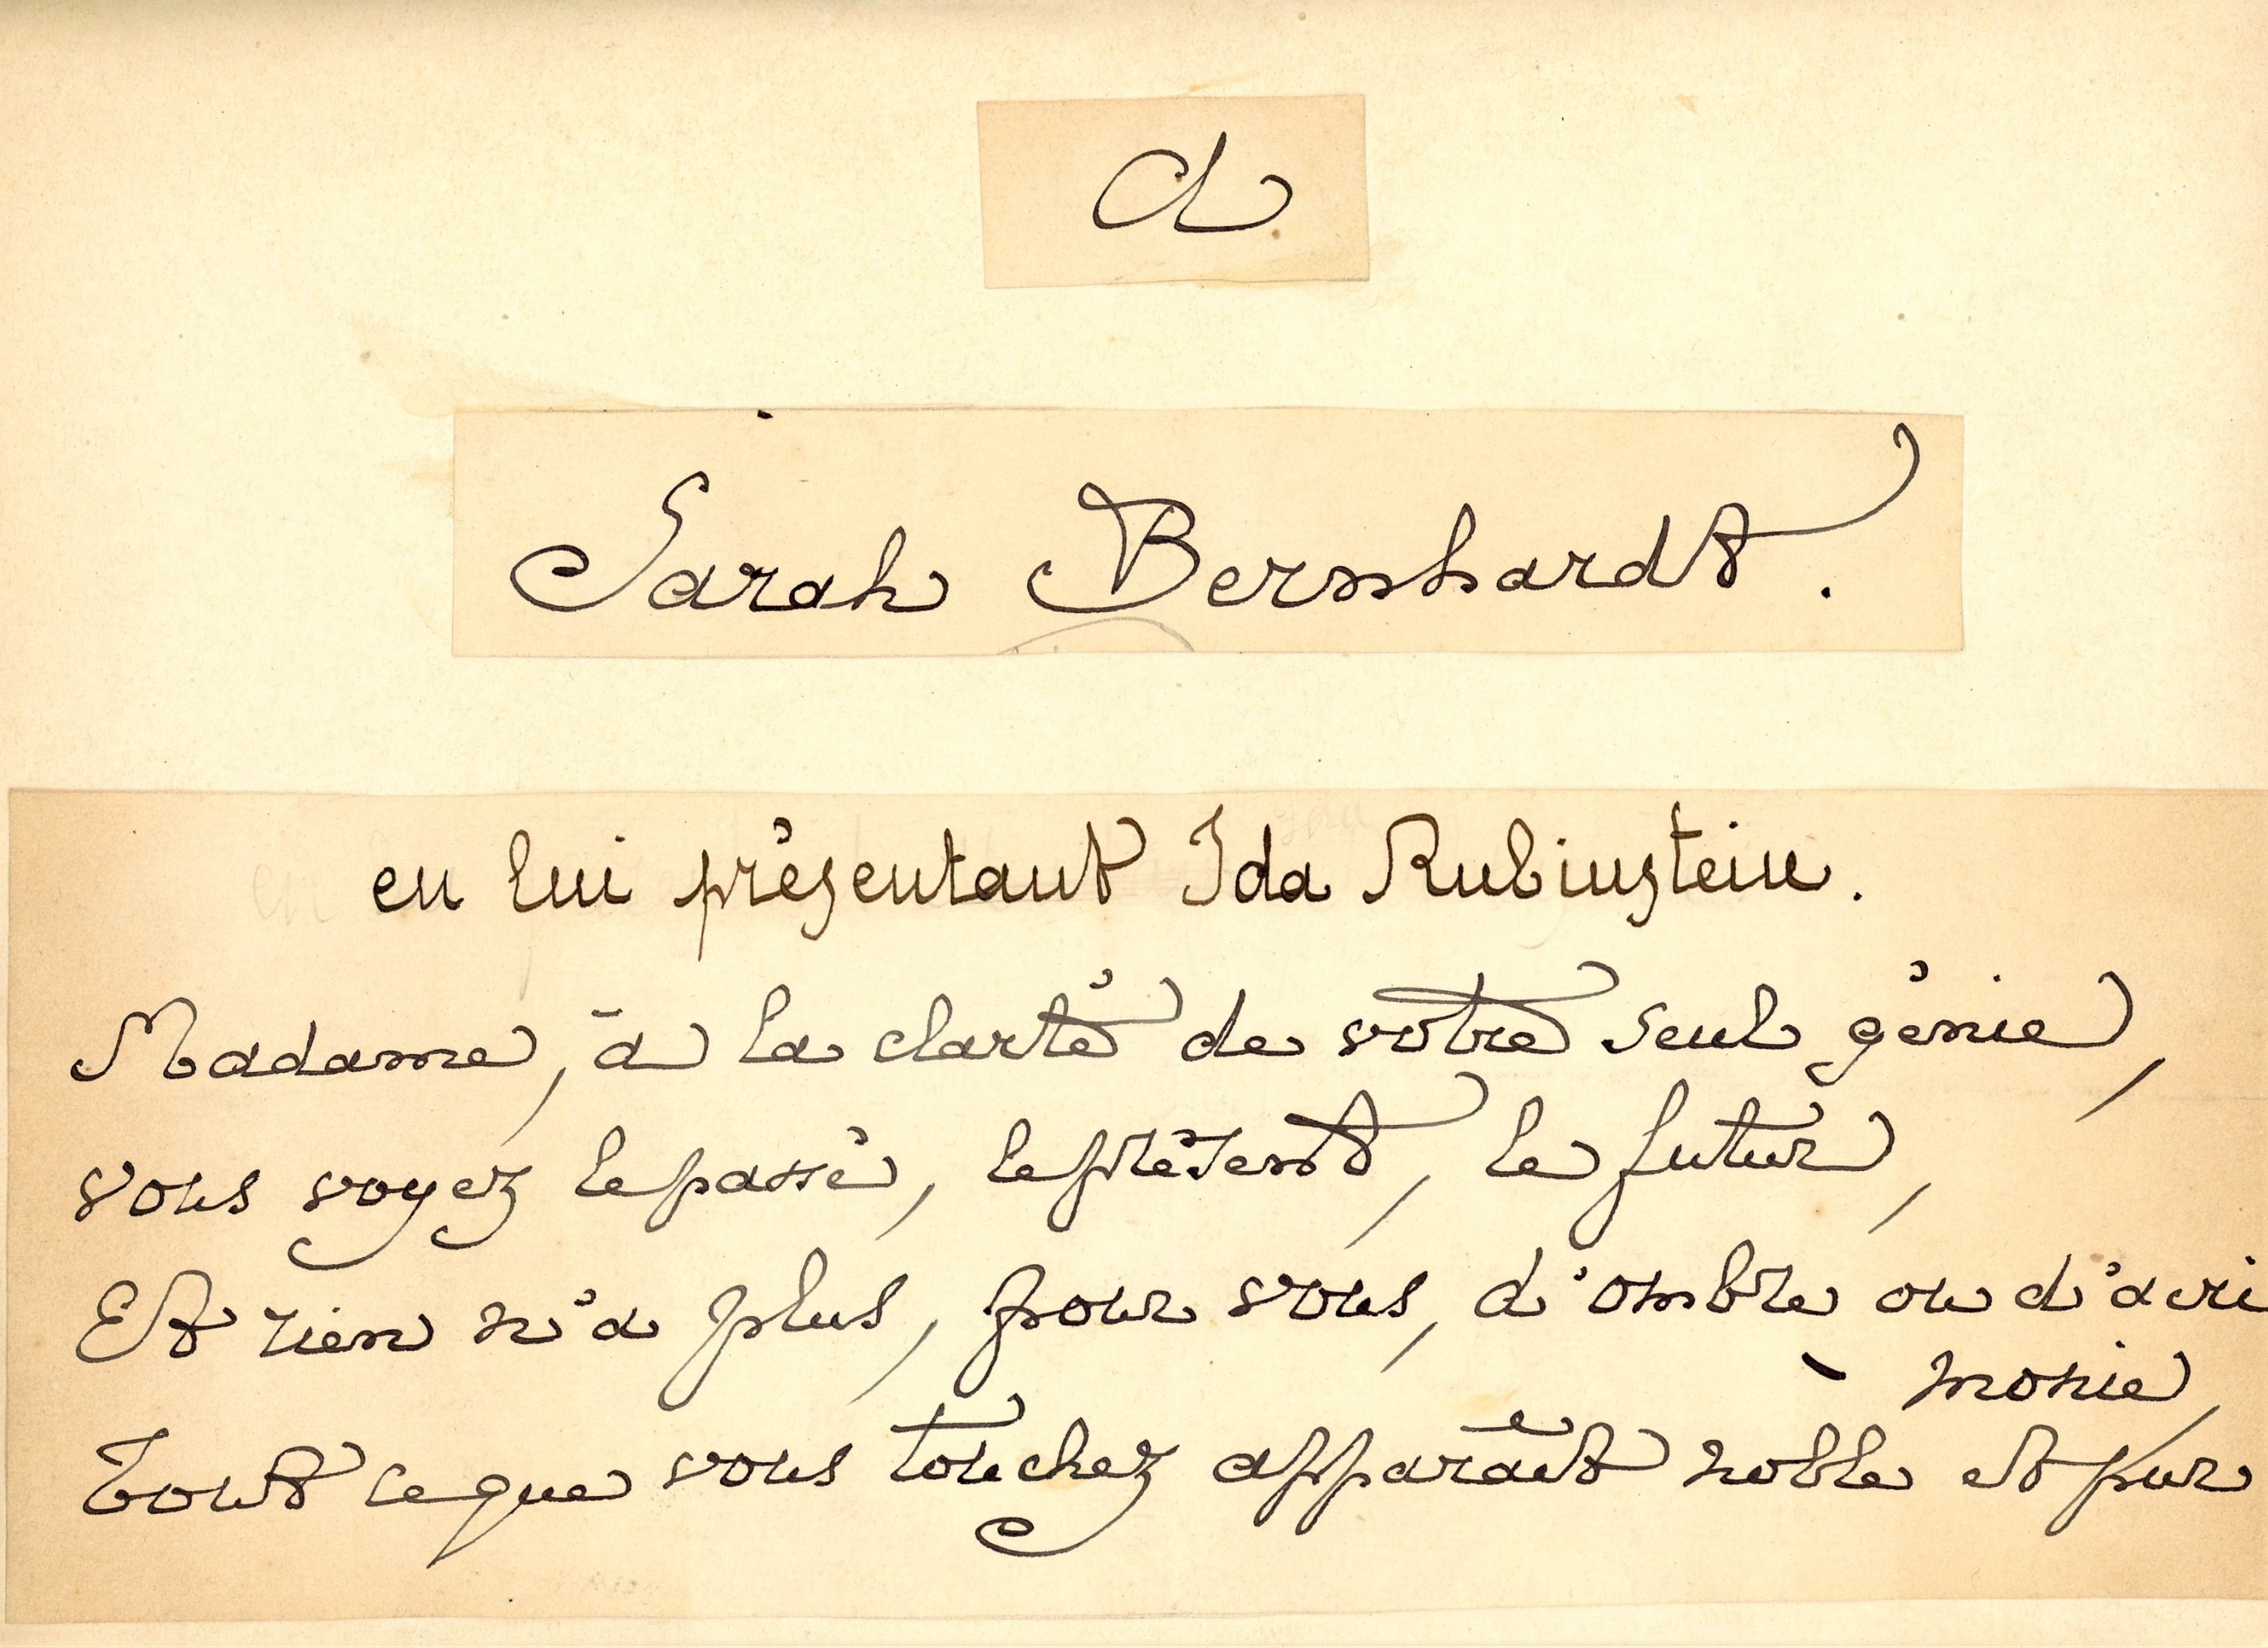 A
Sarah Bernhardt.
en lui présentant Ida Rubinstein.
Madame, à la clarté de votre seul génie,
vous voyez le passé, le présent, le futur,
Et rien n'a plus, pour vous, d'ombre ou d'acri
monie,
Tout ce que vous touchez apparaît noble et pur